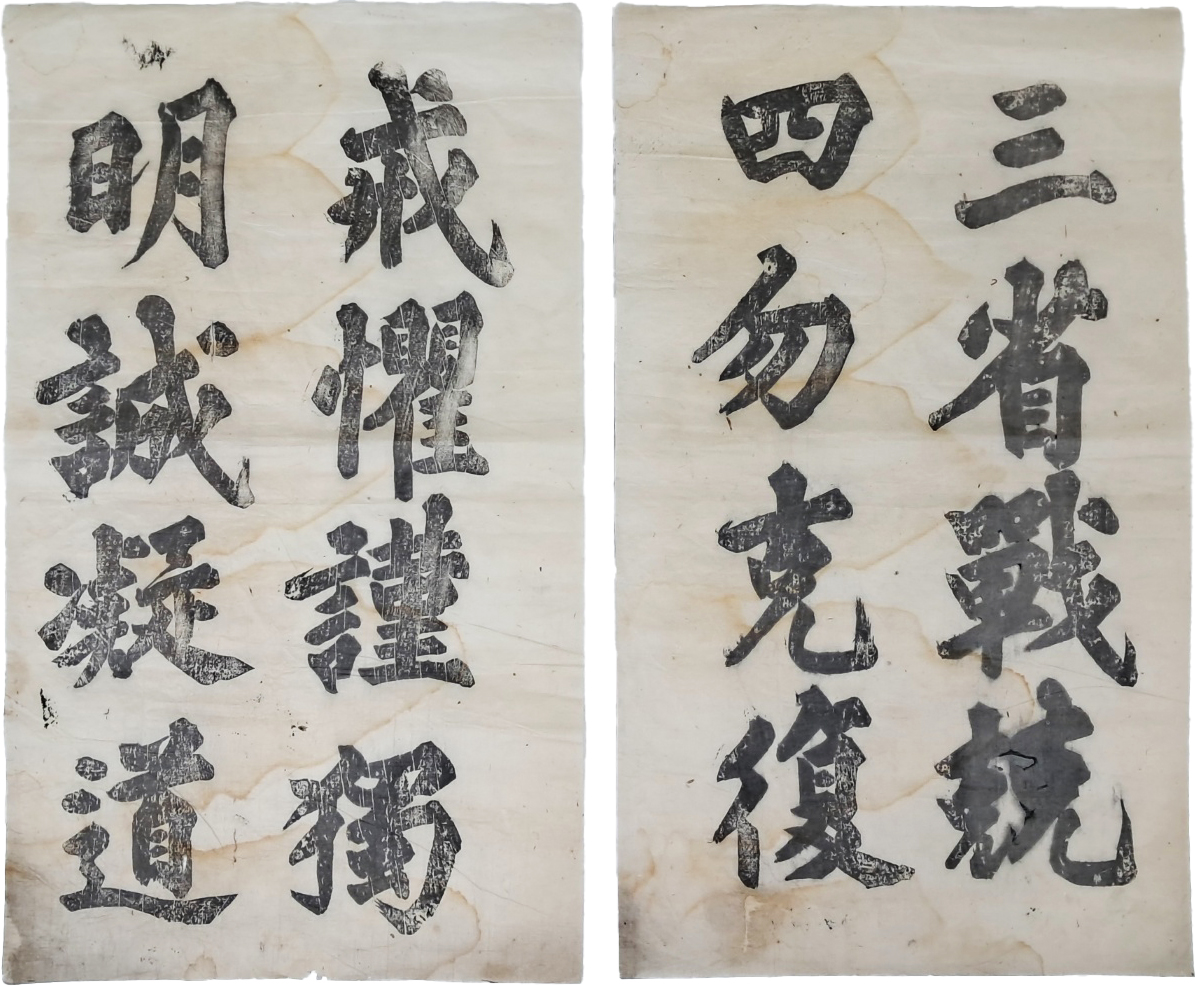 三省戰兢
四勿克復
戒懼謹獨
明誠凝道